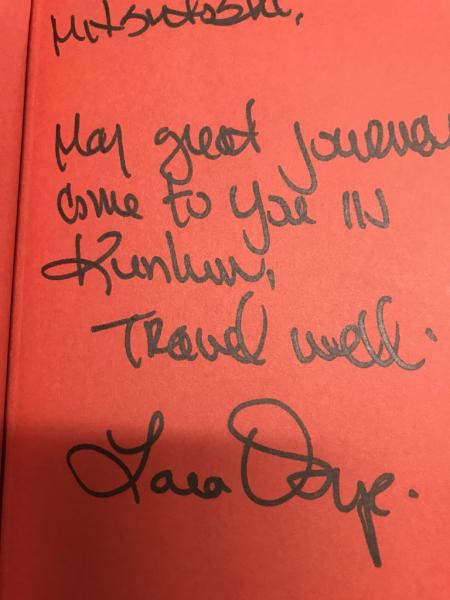 Mitsutoshi,
May great journey
come to you in
Kunlun,
Travel well.
Lara Dye.